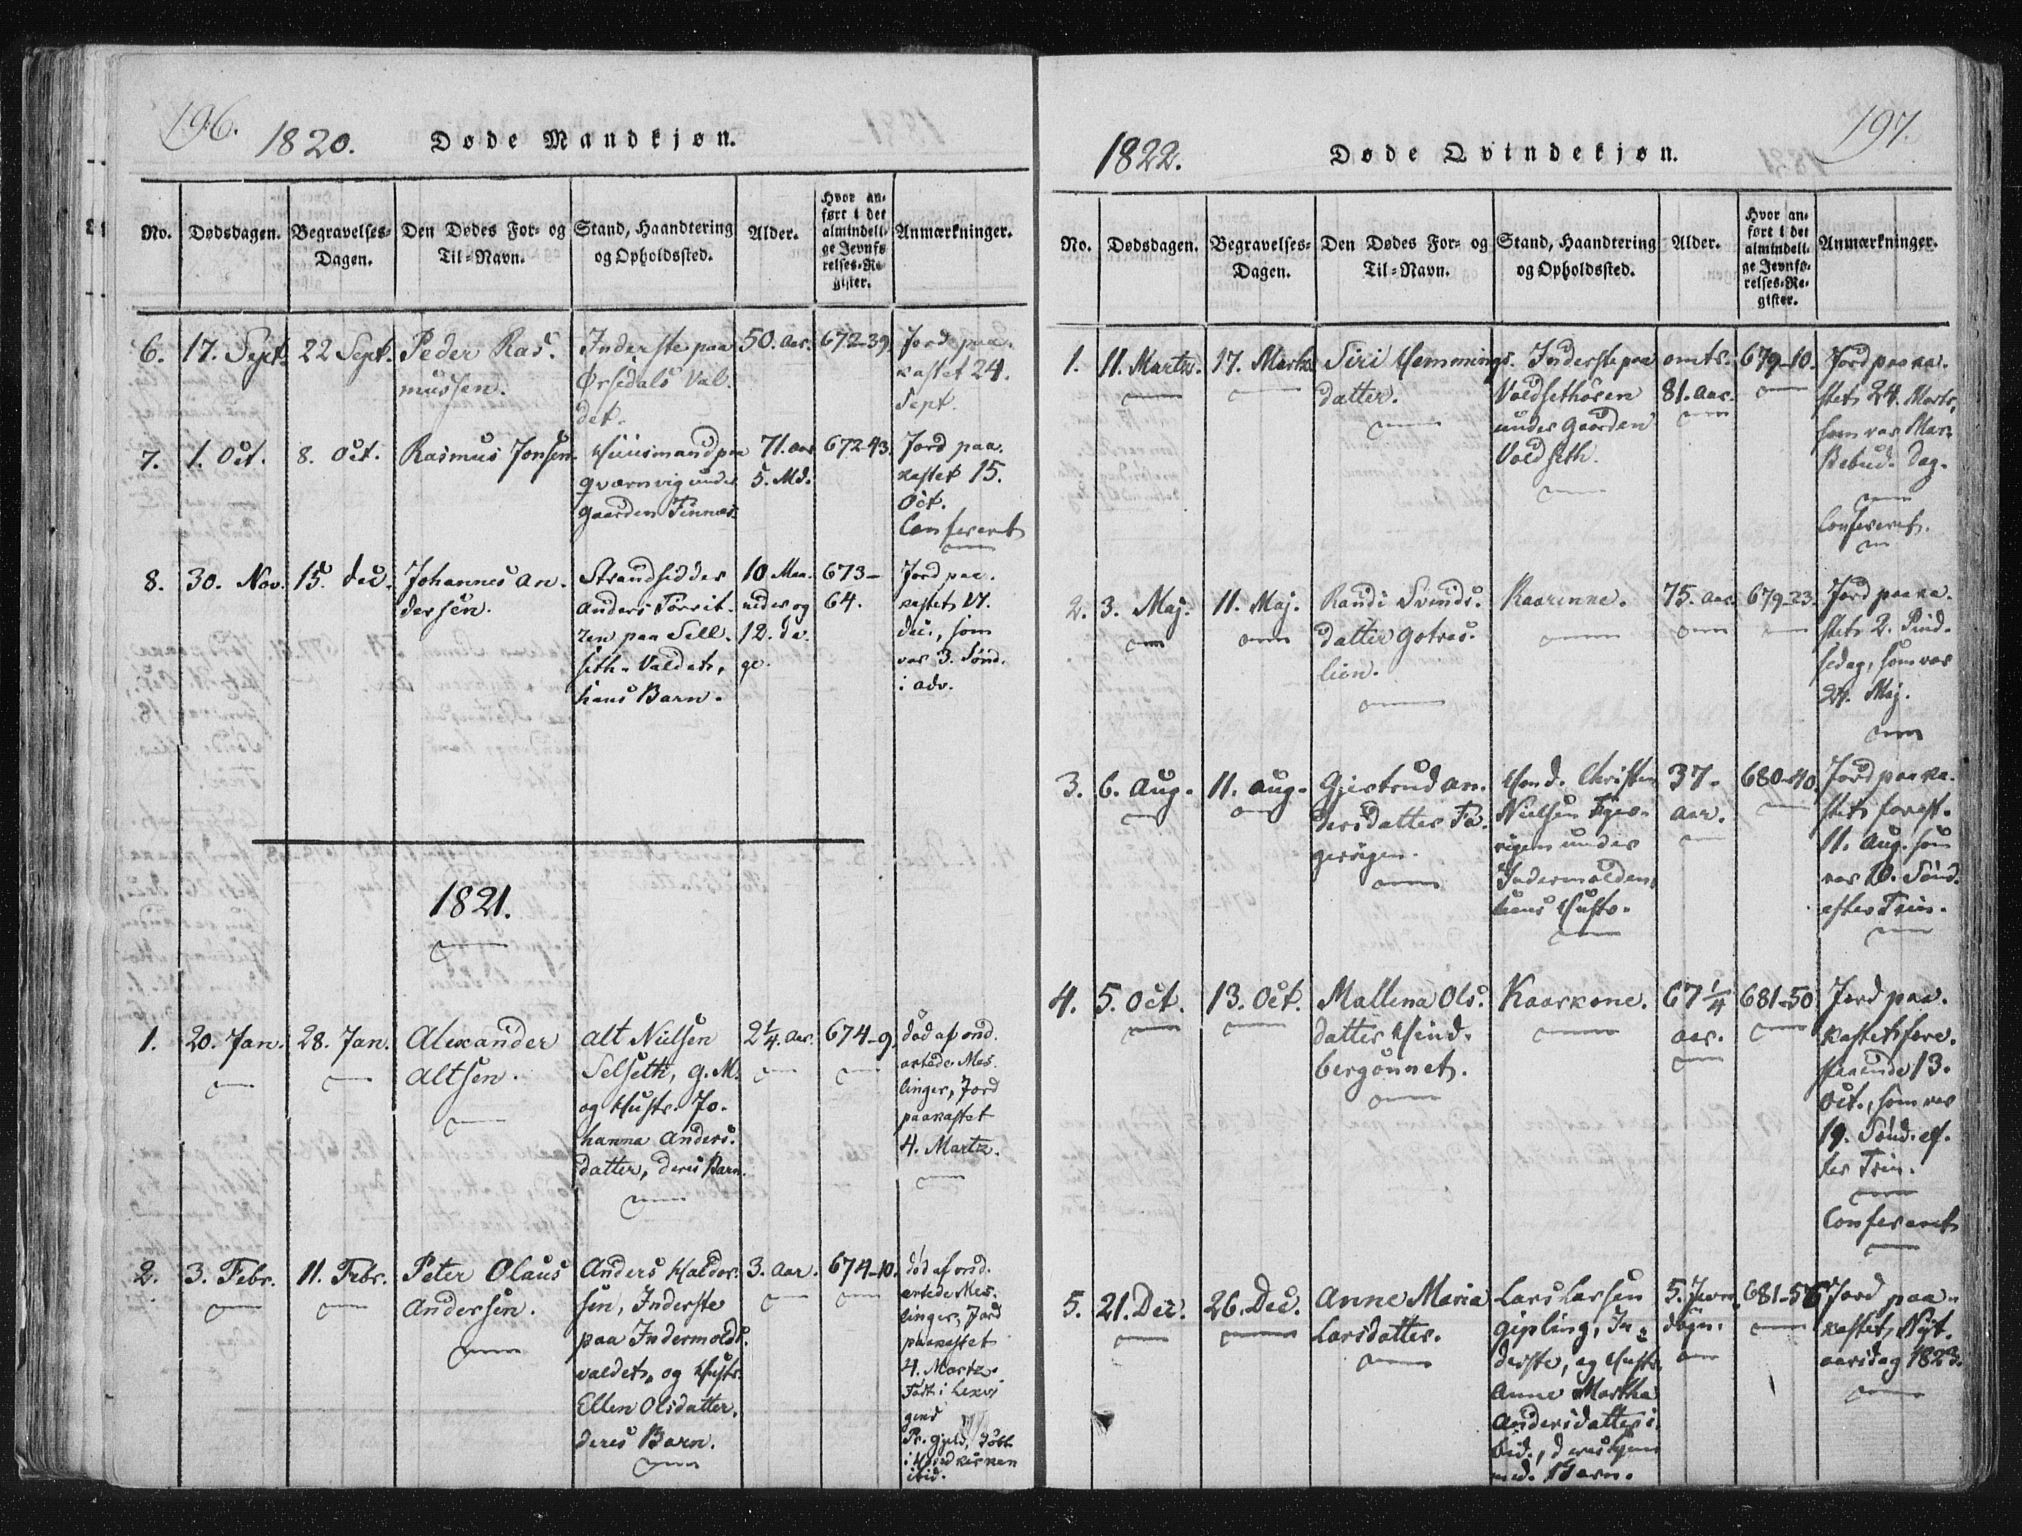 196.
1820.
Døde Mandkjøn.
No.
Dødsdagen.
Begravelses-
Dagen.
Den Dødes For- og
Til-Navn.
Stand, Haandtering
og Opholdssted.
Alder.
Hvor an-
ført i det
almindeli-
ge Jevnfø
relses-Re
gister.
Anmærkninger.
6.
17. Sept.
22 Sept.
Peder Ras-
mussen.
Inderste paa
Ørsdals Val-
det.
50. Aar.
672-39
Jord paa-
kastet 24.
Sept.
7.
1. Oct.
8. Oct.
Rasmus Jonsen
Huusmand paa
Qværnvig under
Gaarden Finnes.
71. Aar
5. Md.
672-43
Jord paa-
kastet 15.
Oct.
Confereret
8.
30. Nov.
15. Dec.
Johannes An-
dersen.
Strandsidder
Anders
paa Sell-
seth-Valdet,
hans Barn.
10 Maa-
neder og
12. Da-
ge.
673-
64.
Jord paa-
kastet 17.
Dec., som
var 3. Sønd.
i Adv.
1821.
1.
20. Jan.
28. Jan.
Alexander
Altsen.
Alt Nielsen
Selseth, G. M.
og Hustr. Jo-
hanna Anders-
datter, deres Barn.
2 1/4. Aar.
674-9.
Død af ond-
artede Mes-
linger, Jord
paakastet
4. Martz.
2.
3. Febr.
11. Febr.
Peter Olaus
Andersen.
Anders Haldor-
sen, Inderste
paa Indermolds-
valdet, og Hustr.
Ellen Olsdatter,
deres Barn.
3. Aar.
674-10.
Død af ond-
artede Mes-
linger, Jord
paakastet
4. Martz.
Født i
Pr. Gjeld, døbt
i
ibid.
197.
1822.
Døde Qvindekjøn.
No.
Dødsdagen.
Begravelses-
Dagen.
Den Dødes For- og
Til-Navn.
Stand, Haandtering
og Opholdssted.
Alder.
Hvor an-
ført i det
almindeli-
ge Jevnfø-
relses-Re-
gister.
Anmærkninger.
1.
11. Martz.
17. Martz
Siri Hemmings-
datter.
Inderste paa
Voldsethøsen
under Gaarden
Voldseth.
omtr.
81. Aar.
679-10.
Jord paaka-
stet 24. Marts,
som var Mar.
Bebud. Dag.
Confereret.
2.
3. Maj.
11. Maj.
Randi Svends-
datter Gotres-
lien.
Kaarinne.
75. Aar.
679-23.
Jord paaka-
stet 2. Pind-
sedag, som var
27. Maj.
3.
6. Aug.
11. Aug.
Gjertrud An-
dersdatter Fa-
gervigen.
Hmd. Christen
Nielsen Fager-
vigen under
Indermolden,
hans Hustr.
37.
Aar.
680-40
Jord paaka-
stet forest.
11. Aug. som
var 10. Sønd.
efter Trin.
4.
5. Oct.
13. Oct.
Mallena Ols-
datter Hind-
bergønnet.
Kaarkone.
67 1/4
Aar.
681-50
Jord paa-
kastet fore-
staaende 13.
Oct., som var
19. Sønd. ef-
ter Trin.
Confereret
5.
21. Dec.
26. Dec.
Anne Maria
Larsdatter.
Lars Larsen
Gipling, In-
derste, og Hustr.
Anne Martha
Andersdatter i-
bid., deres hjem-
med. Barn.
5. Jevn-
døgn.
681-56
Jord paa-
kastet Nyt-
aarsdag 1823.